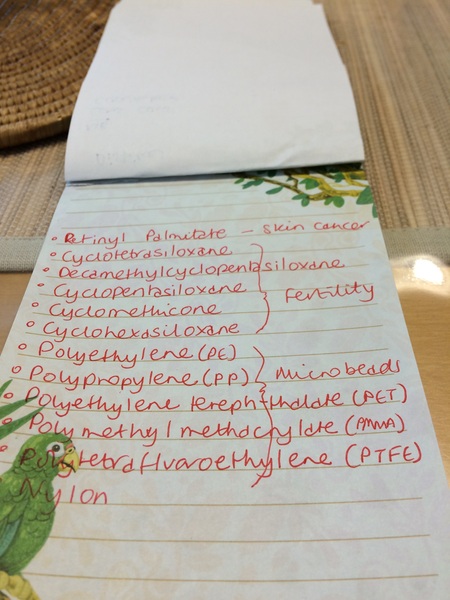 • Retinyl Palmitate - skin cancer
• Cyclotetrasiloxane
• Decamethylcyclopentasiloxane
• Cyclopentasiloxane
Fertility
• Cyclomethicone
• Cyclohexasiloxane
• Polyethylene (PE)
• Polypropylene (PP)
Microbeads
• Polyethylene terephthalate (PET)
• Polymethyl methacrylate (PMMA)
• Polytetrafluroethylene (PTFE)
Nylon